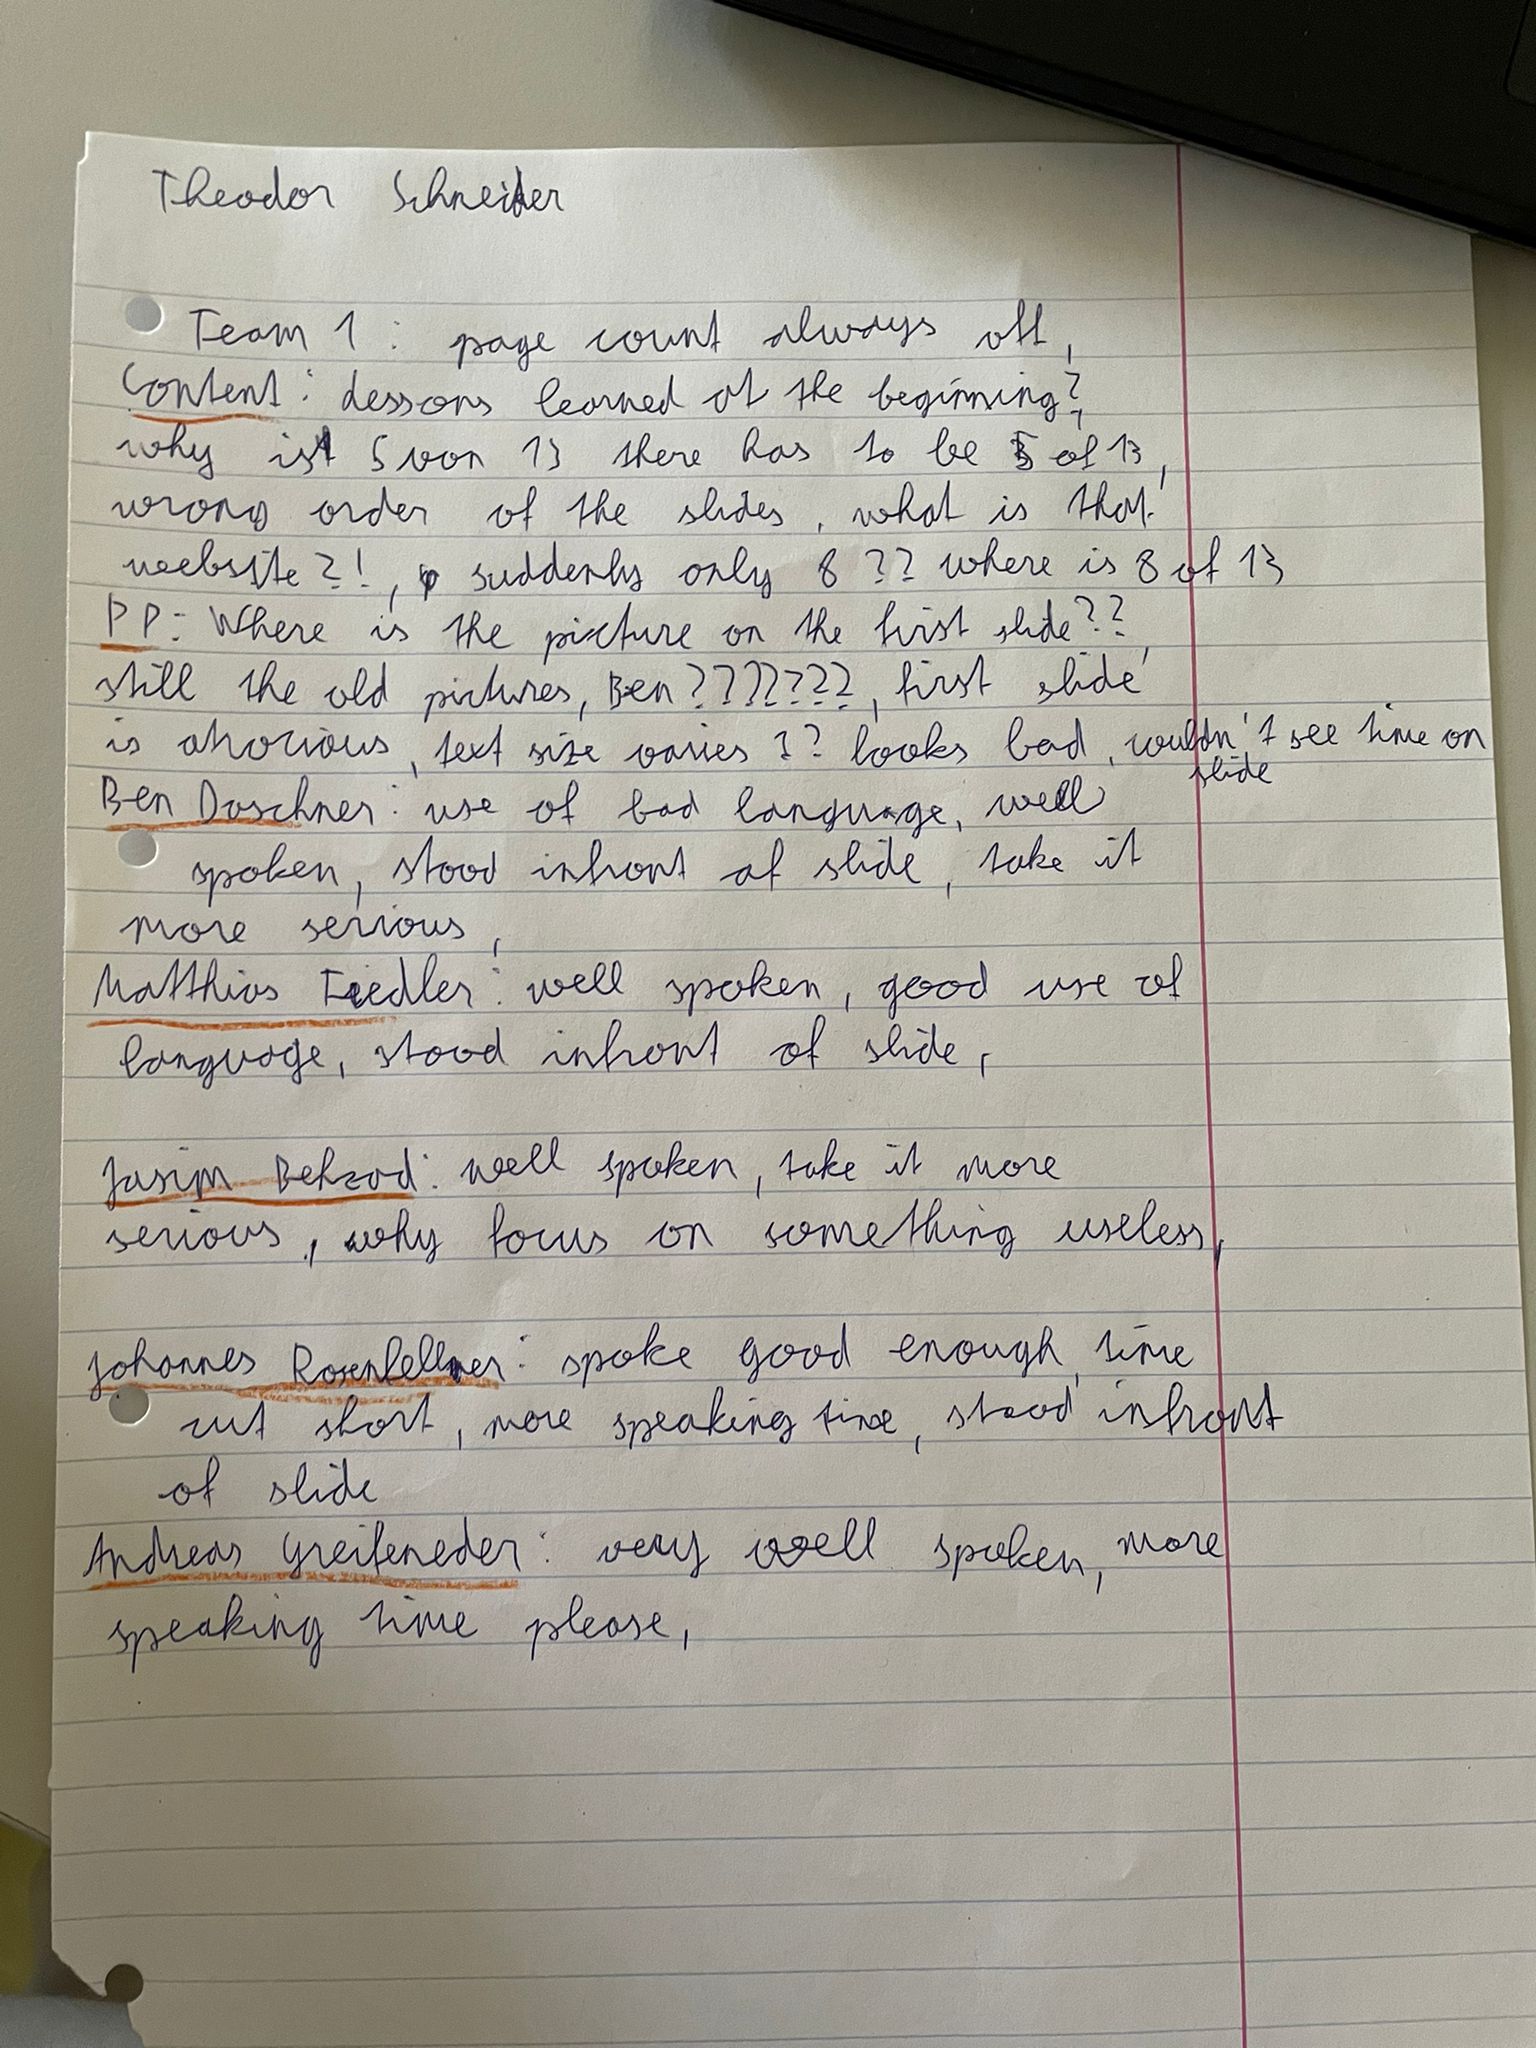 Theodor Schneider
Team 1: page count always off,
Content: dessons learned at the beginning?,
why ist 5 von 13 there has to be 5 of 13,
wrong order of the slides, what is that
website?!, suddenly only 8?? where is 8 of 13
PP: Where is the picture on the first slide??,
still the old pictures, Ben???????, first slide
is atrocious, text size varies?? looks bad, couldn't see time on
slide
Ben Daschner: use of bad language, well
spoken, stood infront of slide, take it
more serious,
Matthias Fiedler: well spoken, good use of
language, stood infront of slide,
Jasim Behzad: well spoken, take it more
serious, why focus on something useless,
Johannes Rosenfellner: spoke good enough, time
cut short, more speaking time, stood infront
of slide
Andreas Greifeneder: very well spoken, more
speaking time please,